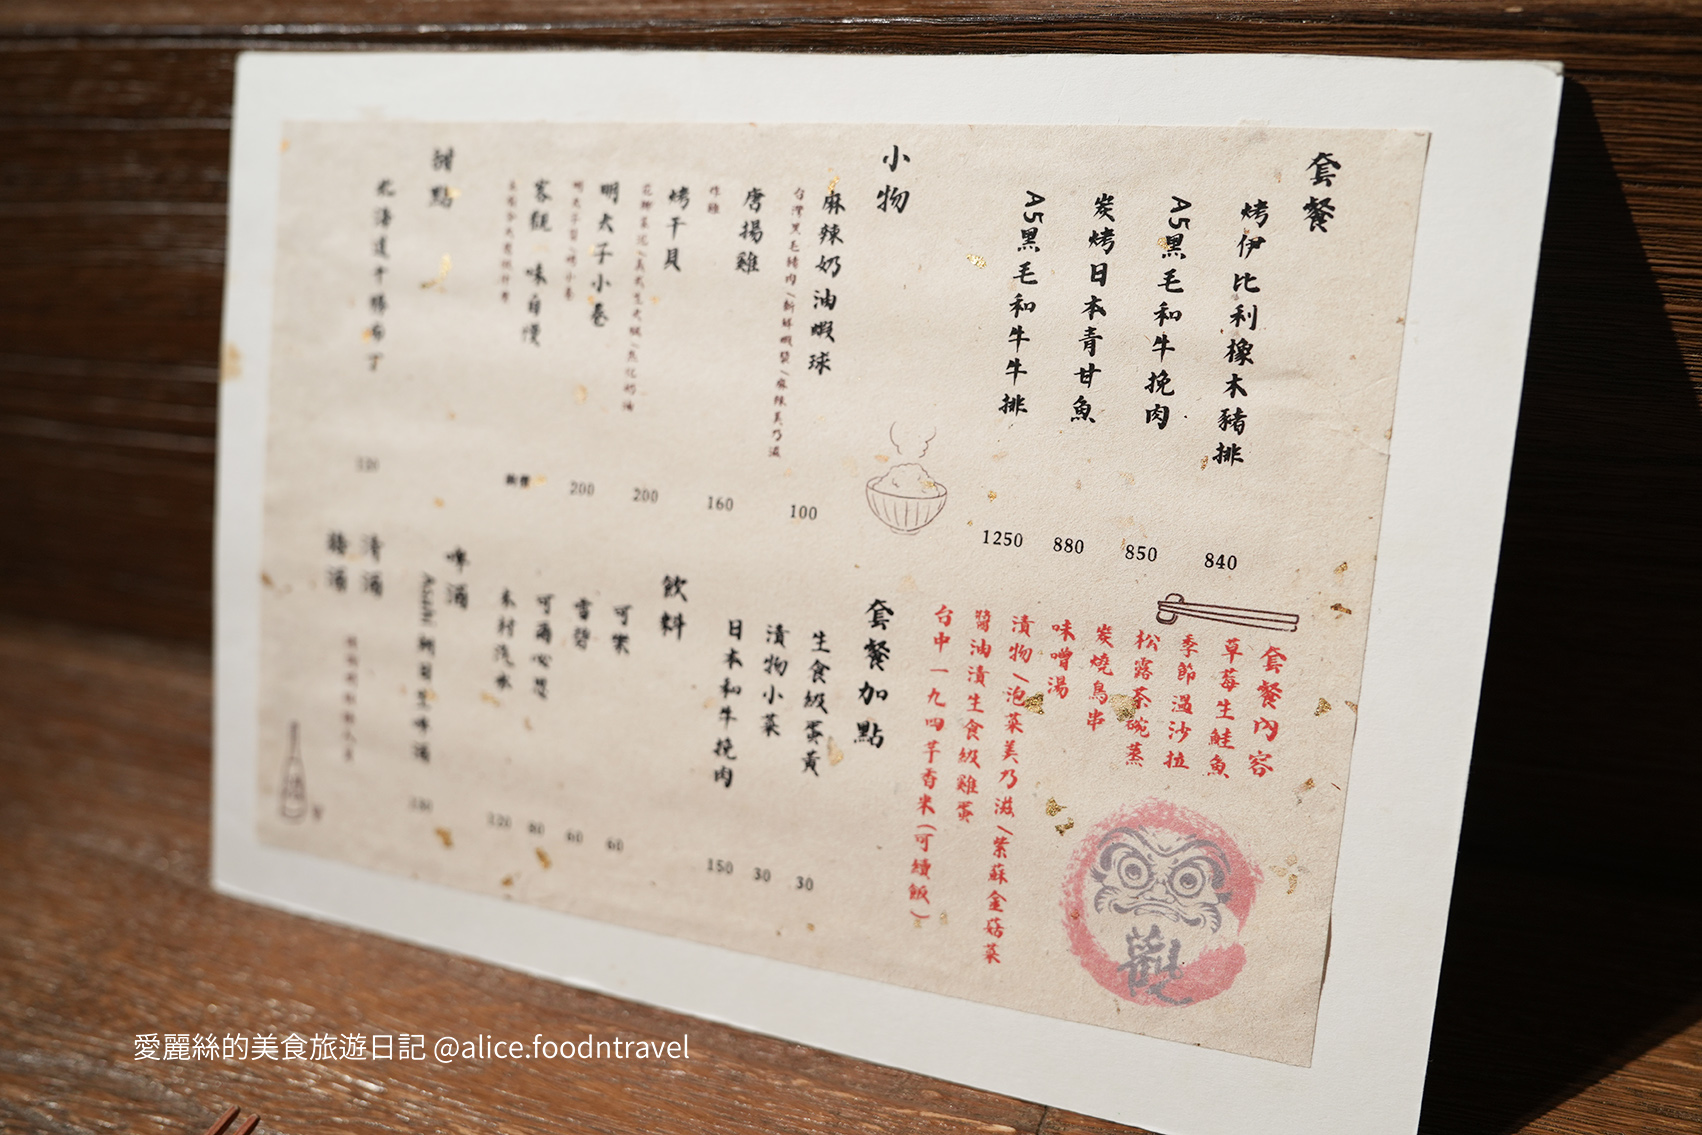 套餐
烤伊比利橡木豬排
840
A5黑毛和牛挽肉
850
炭烤日本青甘魚
880
A5黑毛和牛牛排
1250
小物
麻辣奶油蝦球
台灣黑毛豬肉/新鮮蝦漿/麻辣美乃滋
100
唐揚雞
炸雞
160
烤干貝
200
明太子小卷
200
客觀 味自慢
時價
甜點
套餐內容
草莓生鮭魚
季節溫沙拉
松露茶碗蒸
炭燒鳥串
味噌湯
漬物/泡菜美乃滋/紫蘇金菇菜
醬油漬生食級雞蛋
台中一九四芋香米(可續飯)
觀
套餐加點
生食級蛋黃
30
漬物小菜
30
日本和牛挽肉
150
飲料
可樂
60
雪碧
60
可爾必思
60
木村汽水
120
啤酒
Asahi 朝日生啤酒
清酒
梅酒
愛麗絲的美食旅遊日記 @alice.foodntravel